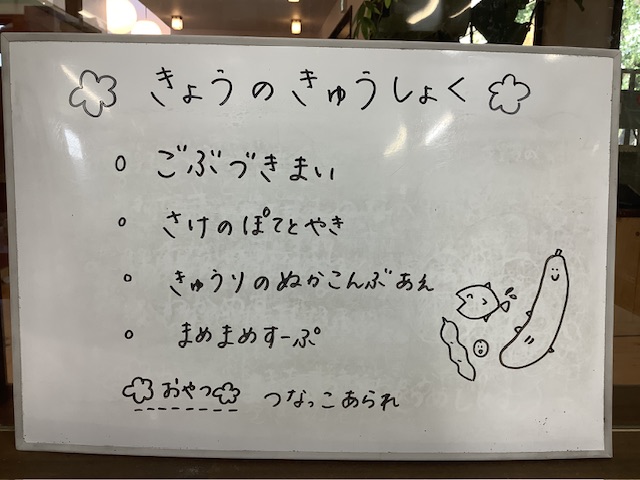 きょうのきゅうしょく
○ ごぶづきまい
○ さけのぽてとやき
○ きゅうりのぬかこんぶあえ
○ まめまめすーぷ
おやつ つなっこあられ